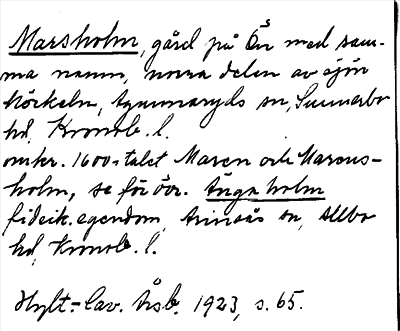 Marsholm, gård på Ö:s med sam-
ma namn, norra delen av sjön
Möckeln, Agunnaryds sn, Sunnerbo
hd, Kronob. l.
omkr. 1600-talet Maren och Marcus-
holm, se för övr. Tuga holm
fideik. egendom, Arinsås sn, Allbo
hd, Kronob. l.
Hylt.-Cav. Årsb. 1923, s. 65.